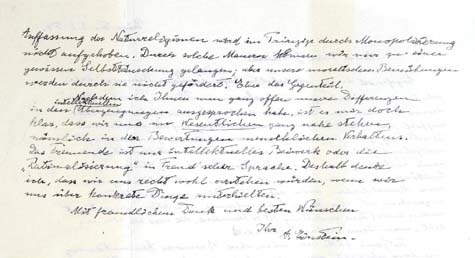 Auffassung der Naturreligionen wird im Prinzip durch Monopolisierung
nicht aufgehoben. Durch solche Mauern können wir nur zu einer
gewissen Selbsttäuschung gelangen; aber unsere moralischen Bemühungen
werden durch sie nicht gefördert. Eher das Gegenteil.
Nachdem ich Ihnen nun ganz offen unsere Differenzen
in den intellektuellen Überzeugungen ausgesprochen habe, ist es mir doch
klar, dass wir uns im Wesentlichen ganz nahe stehen,
nämlich in den Bewertungen menschlichen Verhaltens.
Das Trennende ist nur intellektuelles Beiwerk oder die
"Rationalisierung" in Freud'scher Sprache. Deshalb denke
ich, dass wir uns recht wohl verstehen würden, wenn wir
uns über konkrete Dinge unterhielten.
Mit freundlichem Dank und besten Wünschen
Ihr
A. Einstein.